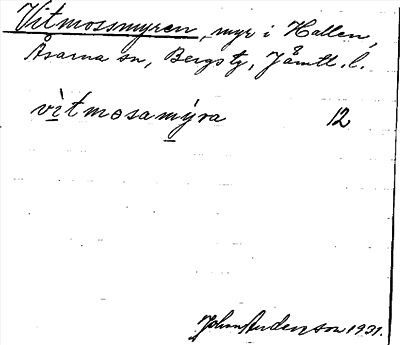 Vitmossmyren, myr i Hallen,
Åsarna sn, Bergs tg, Jämtl. l.
vìtmosamýra 12
John Andersson 1931.